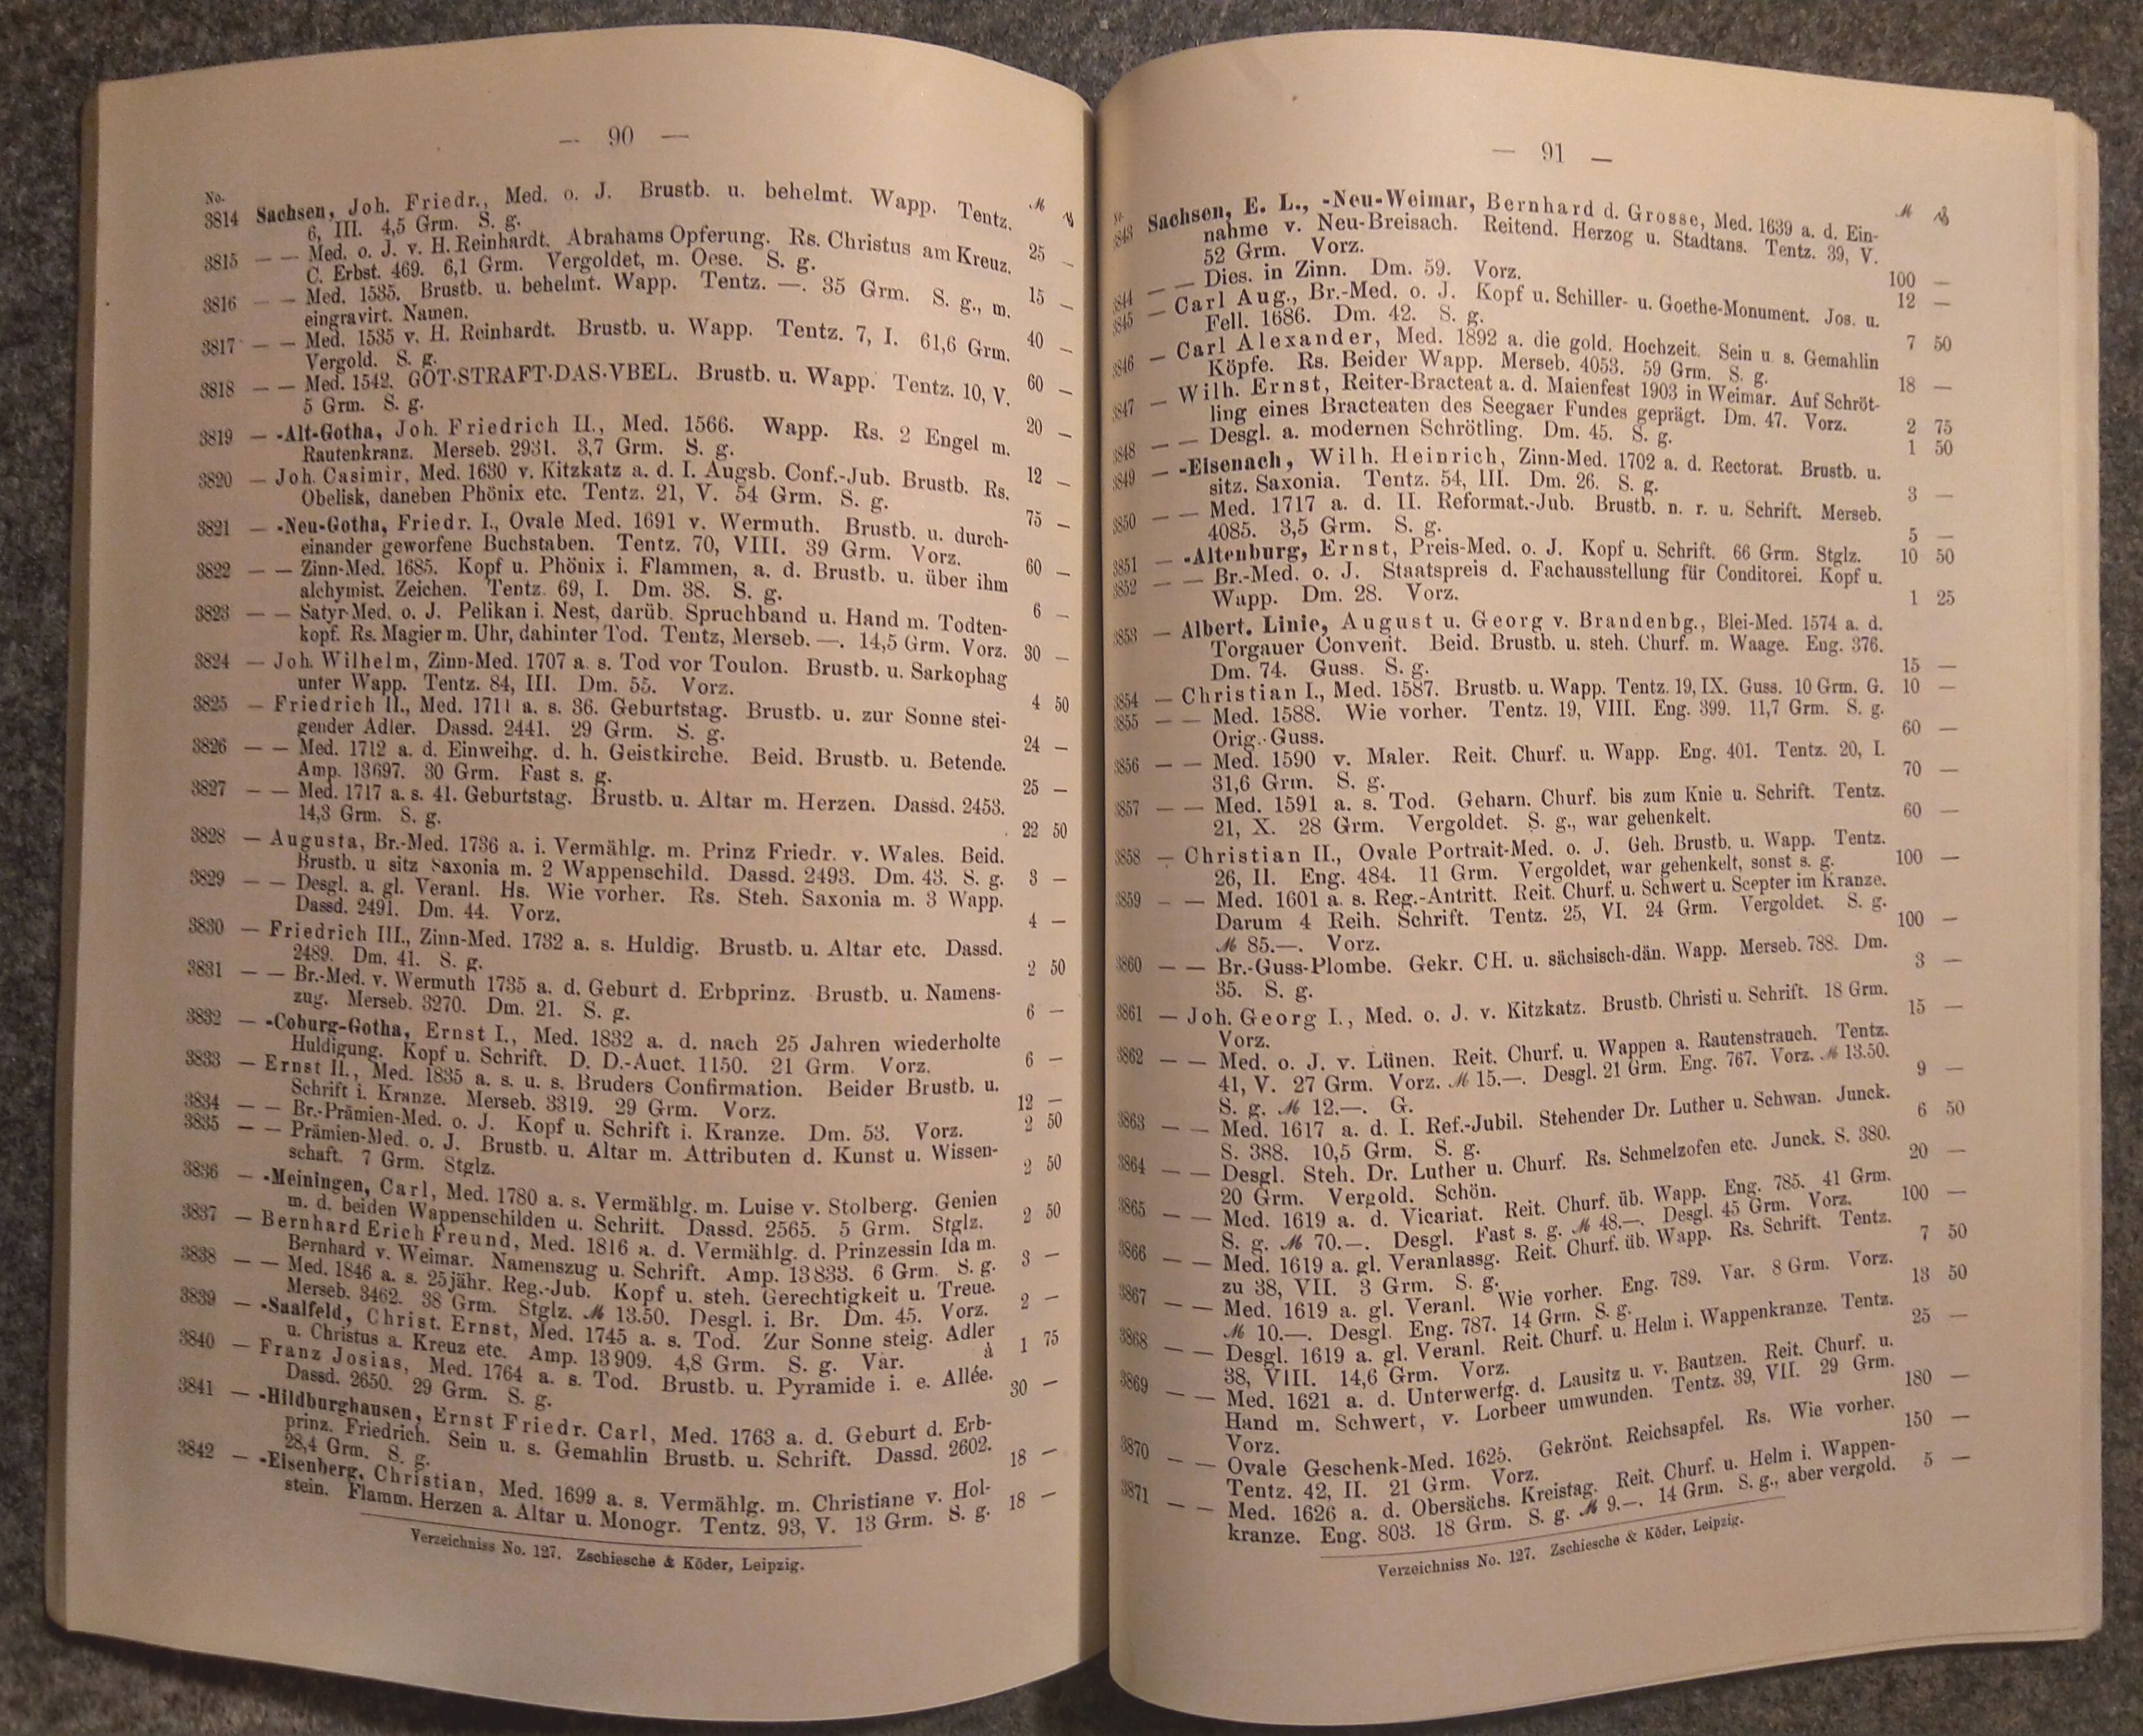 — 90 —
No. ℳ ₰
3814 Sachsen, Joh. Friedr., Med. o. J. Brustb. u. behelmt. Wapp. Tentz.
6, III. 4,5 Grm. S. g. 25 —
3815 — — Med. o. J. v. H. Reinhardt. Abrahams Opferung. Rs. Christus am Kreuz.
C. Erbst. 469. 6,1 Grm. Vergoldet, m. Oese. S. g. 15 —
3816 — — Med. 1535. Brustb. u. behelmt. Wapp. Tentz. —. 35 Grm. S. g., m.
eingravirt. Namen. 40 —
3817 — — Med. 1535 v. H. Reinhardt. Brustb. u. Wapp. Tentz. 7, I. 61,6 Grm.
Vergold. S. g. 60 —
3818 — — Med. 1542. GOT·STRAFT·DAS·VBEL. Brustb. u. Wapp. Tentz. 10, V.
5 Grm. S. g. 20 —
3819 — -Alt-Gotha, Joh. Friedrich II., Med. 1566. Wapp. Rs. 2 Engel m.
Rautenkranz. Merseb. 2931. 3,7 Grm. S. g. 12 —
3820 — Joh. Casimir, Med. 1630 v. Kitzkatz a. d. I. Augsb. Conf.-Jub. Brustb. Rs.
Obelisk, daneben Phönix etc. Tentz. 21, V. 54 Grm. S. g. 75 —
3821 — -Neu-Gotha, Friedr. I., Ovale Med. 1691 v. Wermuth. Brustb. u. durch-
einander geworfene Buchstaben. Tentz. 70, VIII. 39 Grm. Vorz. 60 —
3822 — — Zinn-Med. 1685. Kopf u. Phönix i. Flammen, a. d. Brustb. u. über ihm
alchymist. Zeichen. Tentz. 69, I. Dm. 38. S. g. 6 —
3823 — — Satyr-Med. o. J. Pelikan i. Nest, darüb. Spruchband u. Hand m. Todten-
kopf. Rs. Magier m. Uhr, dahinter Tod. Tentz, Merseb. —. 14,5 Grm. Vorz. 30 —
3824 — Joh. Wilhelm, Zinn-Med. 1707 a. s. Tod vor Toulon. Brustb. u. Sarkophag
unter Wapp. Tentz. 84, III. Dm. 55. Vorz. 4 50
3825 — Friedrich II., Med. 1711 a. s. 36. Geburtstag. Brustb. u. zur Sonne stei-
gender Adler. Dassd. 2441. 29 Grm. S. g. 24 —
3826 — — Med. 1712 a. d. Einweihg. d. h. Geistkirche. Beid. Brustb. u. Betende.
Amp. 13697. 30 Grm. Fast s. g. 25 —
3827 — — Med. 1717 a. s. 41. Geburtstag. Brustb. u. Altar m. Herzen. Dassd. 2453.
14,3 Grm. S. g. 22 50
3828 — Augusta, Br.-Med. 1736 a. i. Vermählg. m. Prinz Friedr. v. Wales. Beid.
Brustb. u sitz Saxonia m. 2 Wappenschild. Dassd. 2493. Dm. 43. S. g. 3 —
3829 — — Desgl. a. gl. Veranl. Hs. Wie vorher. Rs. Steh. Saxonia m. 3 Wapp.
Dassd. 2491. Dm. 44. Vorz. 4 —
3830 — Friedrich III., Zinn-Med. 1732 a. s. Huldig. Brustb. u. Altar etc. Dassd.
2489. Dm. 41. S. g. 2 50
3831 — — Br.-Med. v. Wermuth 1735 a. d. Geburt d. Erbprinz. Brustb. u. Namens-
zug. Merseb. 3270. Dm. 21. S. g. 6 —
3832 — -Coburg-Gotha, Ernst I., Med. 1832 a. d. nach 25 Jahren wiederholte
Huldigung. Kopf u. Schrift. D. D.-Auct. 1150. 21 Grm. Vorz. 6 —
3833 — Ernst II., Med. 1835 a. s. u. s. Bruders Confirmation. Beider Brustb. u.
Schrift i. Kranze. Merseb. 3319. 29 Grm. Vorz. 12 —
3834 — — Br.-Prämien-Med. o. J. Kopf u. Schrift i. Kranze. Dm. 53. Vorz. 2 50
3835 — — Prämien-Med. o. J. Brustb. u. Altar m. Attributen d. Kunst u. Wissen-
schaft. 7 Grm. Stglz. 2 50
3836 — -Meiningen, Carl, Med. 1780 a. s. Vermählg. m. Luise v. Stolberg. Genien
m. d. beiden Wappenschilden u. Schrift. Dassd. 2565. 5 Grm. Stglz. 2 50
3837 — Bernhard Erich Freund, Med. 1816 a. d. Vermählg. d. Prinzessin Ida m.
Bernhard v. Weimar. Namenszug u. Schrift. Amp. 13833. 6 Grm. S. g. 3 —
3838 — — Med. 1846 a. s. 25jähr. Reg.-Jub. Kopf u. steh. Gerechtigkeit u. Treue.
Merseb. 3462. 38 Grm. Stglz. ℳ 13.50. Desgl. i. Br. Dm. 45. Vorz. 2 —
3839 — -Saalfeld, Christ. Ernst, Med. 1745 a. s. Tod. Zur Sonne steig. Adler
u. Christus a. Kreuz etc. Amp. 13909. 4,8 Grm. S. g. Var. à 1 75
3840 — Franz Josias, Med. 1764 a. s. Tod. Brustb. u. Pyramide i. e. Allée.
Dassd. 2650. 29 Grm. S. g. 30 —
3841 — -Hildburghausen, Ernst Friedr. Carl, Med. 1763 a. d. Geburt d. Erb-
prinz. Friedrich. Sein u. s. Gemahlin Brustb. u. Schrift. Dassd. 2602.
28,4 Grm. S. g. 18 —
3842 — -Eisenberg, Christian, Med. 1699 a. s. Vermählg. m. Christiane v. Hol-
stein. Flamm. Herzen a. Altar u. Monogr. Tentz. 93, V. 13 Grm. S. g. 18 —
Verzeichniss No. 127. Zschiesche & Köder, Leipzig.
— 91 —
ℳ ₰
3843 Sachsen, E. L., -Neu-Weimar, Bernhard d. Grosse, Med. 1639 a. d. Ein-
nahme v. Neu-Breisach. Reitend. Herzog u. Stadtans. Tentz. 39, V.
52 Grm. Vorz. 100 —
3844 — — Dies. in Zinn. Dm. 59. Vorz. 12 —
3845 — Carl Aug., Br.-Med. o. J. Kopf u. Schiller- u. Goethe-Monument. Jos. u.
Fell. 1686. Dm. 42. S. g. 7 50
3846 — Carl Alexander, Med. 1892 a. die gold. Hochzeit. Sein u. s. Gemahlin
Köpfe. Rs. Beider Wapp. Merseb. 4053. 59 Grm. S. g. 18 —
3847 — Wilh. Ernst, Reiter-Bracteat a. d. Maienfest 1903 in Weimar. Auf Schröt-
ling eines Bracteaten des Seegaer Fundes geprägt. Dm. 47. Vorz. 2 75
3848 — — Desgl. a. modernen Schrötling. Dm. 45. S. g. 1 50
3849 — -Eisenach, Wilh. Heinrich, Zinn-Med. 1702 a. d. Rectorat. Brustb. u.
sitz. Saxonia. Tentz. 54, III. Dm. 26. S. g. 3 —
3850 — — Med. 1717 a. d. II. Reformat.-Jub. Brustb. n. r. u. Schrift. Merseb.
4085. 3,5 Grm. S. g. 5 —
3851 — -Altenburg, Ernst, Preis-Med. o. J. Kopf u. Schrift. 66 Grm. Stglz. 10 50
3852 — — Br.-Med. o. J. Staatspreis d. Fachausstellung für Conditorei. Kopf u.
Wapp. Dm. 28. Vorz. 1 25
3853 — Albert. Linie, August u. Georg v. Brandenbg., Blei-Med. 1574 a. d.
Torgauer Convent. Beid. Brustb. u. steh. Churf. m. Waage. Eng. 376.
Dm. 74. Guss. S. g. 15 —
3854 — Christian I., Med. 1587. Brustb. u. Wapp. Tentz. 19, IX. Guss. 10 Grm. G. 10 —
3855 — — Med. 1588. Wie vorher. Tentz. 19, VIII. Eng. 399. 11,7 Grm. S. g.
Orig.-Guss. 60 —
3856 — — Med. 1590 v. Maler. Reit. Churf. u. Wapp. Eng. 401. Tentz. 20, I.
31,6 Grm. S. g. 70 —
3857 — — Med. 1591 a. s. Tod. Geharn. Churf. bis zum Knie u. Schrift. Tentz.
21, X. 28 Grm. Vergoldet. S. g., war gehenkelt. 60 —
3858 — Christian II., Ovale Portrait-Med. o. J. Geh. Brustb. u. Wapp. Tentz.
26, II. Eng. 484. 11 Grm. Vergoldet, war gehenkelt, sonst s. g. 100 —
3859 — — Med. 1601 a. s. Reg.-Antritt. Reit. Churf. u. Schwert u. Scepter im Kranze.
Darum 4 Reih. Schrift. Tentz. 25, VI. 24 Grm. Vergoldet. S. g.
ℳ 85.—. Vorz. 100 —
3860 — — Br.-Guss-Plombe. Gekr. CH. u. sächsisch-dän. Wapp. Merseb. 788. Dm.
35. S. g. 3 —
3861 — Joh. Georg I., Med. o. J. v. Kitzkatz. Brustb. Christi u. Schrift. 18 Grm.
Vorz. 15 —
3862 — — Med. o. J. v. Lünen. Reit. Churf. u. Wappen a. Rautenstrauch. Tentz.
41, V. 27 Grm. Vorz. ℳ 15.—. Desgl. 21 Grm. Eng. 767. Vorz. ℳ 13.50.
S. g. ℳ 12.—. G. 9 —
3863 — — Med. 1617 a. d. I. Ref.-Jubil. Stehender Dr. Luther u. Schwan. Junck.
S. 388. 10,5 Grm. S. g. 6 50
3864 — — Desgl. Steh. Dr. Luther u. Churf. Rs. Schmelzofen etc. Junck. S. 380.
20 Grm. Vergold. Schön. 20 —
3865 — — Med. 1619 a. d. Vicariat. Reit. Churf. üb. Wapp. Eng. 785. 41 Grm.
S. g. ℳ 70.—. Desgl. Fast s. g. ℳ 48.—. Desgl. 45 Grm. Vorz. 100 —
3866 — — Med. 1619 a. gl. Veranlassg. Reit. Churf. üb. Wapp. Rs. Schrift. Tentz.
zu 38, VII. 3 Grm. S. g. 7 50
3867 — — Med. 1619 a. gl. Veranl. Wie vorher. Eng. 789. Var. 8 Grm. Vorz.
ℳ 10.—. Desgl. Eng. 787. 14 Grm. S. g. 13 50
3868 — — Desgl. 1619 a. gl. Veranl. Reit. Churf. u. Helm i. Wappenkranze. Tentz.
38, VIII. 14,6 Grm. Vorz. 25 —
3869 — — Med. 1621 a. d. Unterwerfg. d. Lausitz u. v. Bautzen. Reit. Churf. u.
Hand m. Schwert, v. Lorbeer umwunden. Tentz. 39, VII. 29 Grm.
Vorz. 180 —
3870 — — Ovale Geschenk-Med. 1625. Gekrönt. Reichsapfel. Rs. Wie vorher.
Tentz. 42, II. 21 Grm. Vorz. 150 —
3871 — — Med. 1626 a. d. Obersächs. Kreistag. Reit. Churf. u. Helm i. Wappen-
kranze. Eng. 803. 18 Grm. S. g. ℳ 9.—. 14 Grm. S. g., aber vergold. 5 —
Verzeichniss No. 127. Zschiesche & Köder, Leipzig.